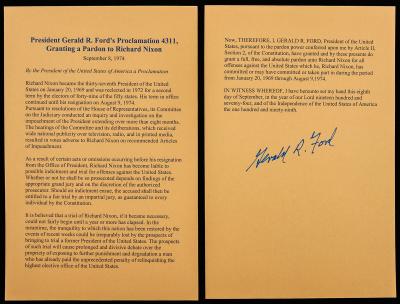 President Gerald R. Ford's Proclamation 4311,
Granting a Pardon to Richard Nixon
September 8, 1974
By the President of the United States of America a Proclamation
Richard Nixon became the thirty-seventh President of the United
States on January 20, 1969 and was reelected in 1972 for a second
term by the electors of forty-nine of the fifty states. His term in office
continued until his resignation on August 9, 1974.
Pursuant to resolutions of the House of Representatives, its Committee
on the Judiciary conducted an inquiry and investigation on the
impeachment of the President extending over more than eight months.
The hearings of the Committee and its deliberations, which received
wide national publicity over television, radio, and in printed media,
resulted in votes adverse to Richard Nixon on recommended Articles
of Impeachment.
As a result of certain acts or omissions occurring before his resignation
from the Office of President, Richard Nixon has become liable to
possible indictment and trial for offenses against the United States.
Whether or not he shall be so prosecuted depends on findings of the
appropriate grand jury and on the discretion of the authorized
prosecutor. Should an indictment ensue, the accused shall then be
entitled to a fair trial by an impartial jury, as guaranteed to every
individual by the Constitution.
It is believed that a trial of Richard Nixon, if it became necessary,
could not fairly begin until a year or more has elapsed. In the
meantime, the tranquility to which this nation has been restored by the
events of recent weeks could be irreparably lost by the prospects of
bringing to trial a former President of the United States. The prospects
of such trial will cause prolonged and divisive debate over the
propriety of exposing to further punishment and degradation a man
who has already paid the unprecedented penalty of relinquishing the
highest elective office of the United States.
Now, THEREFORE, I, GERALD R. FORD, President of the United
States, pursuant to the pardon power conferred upon me by Article II,
Section 2, of the Constitution, have granted and by these presents do
grant a full, free, and absolute pardon unto Richard Nixon for all
offenses against the United States which he, Richard Nixon, has
committed or may have committed or taken part in during the period
from January 20, 1969 through August 9,1974.
IN WITNESS WHEREOF, I have hereunto set my hand this eighth
day of September, in the year of our Lord nineteen hundred and
seventy-four, and of the Independence of the United States of America
the one hundred and ninety-ninth.
Gerald R. Ford